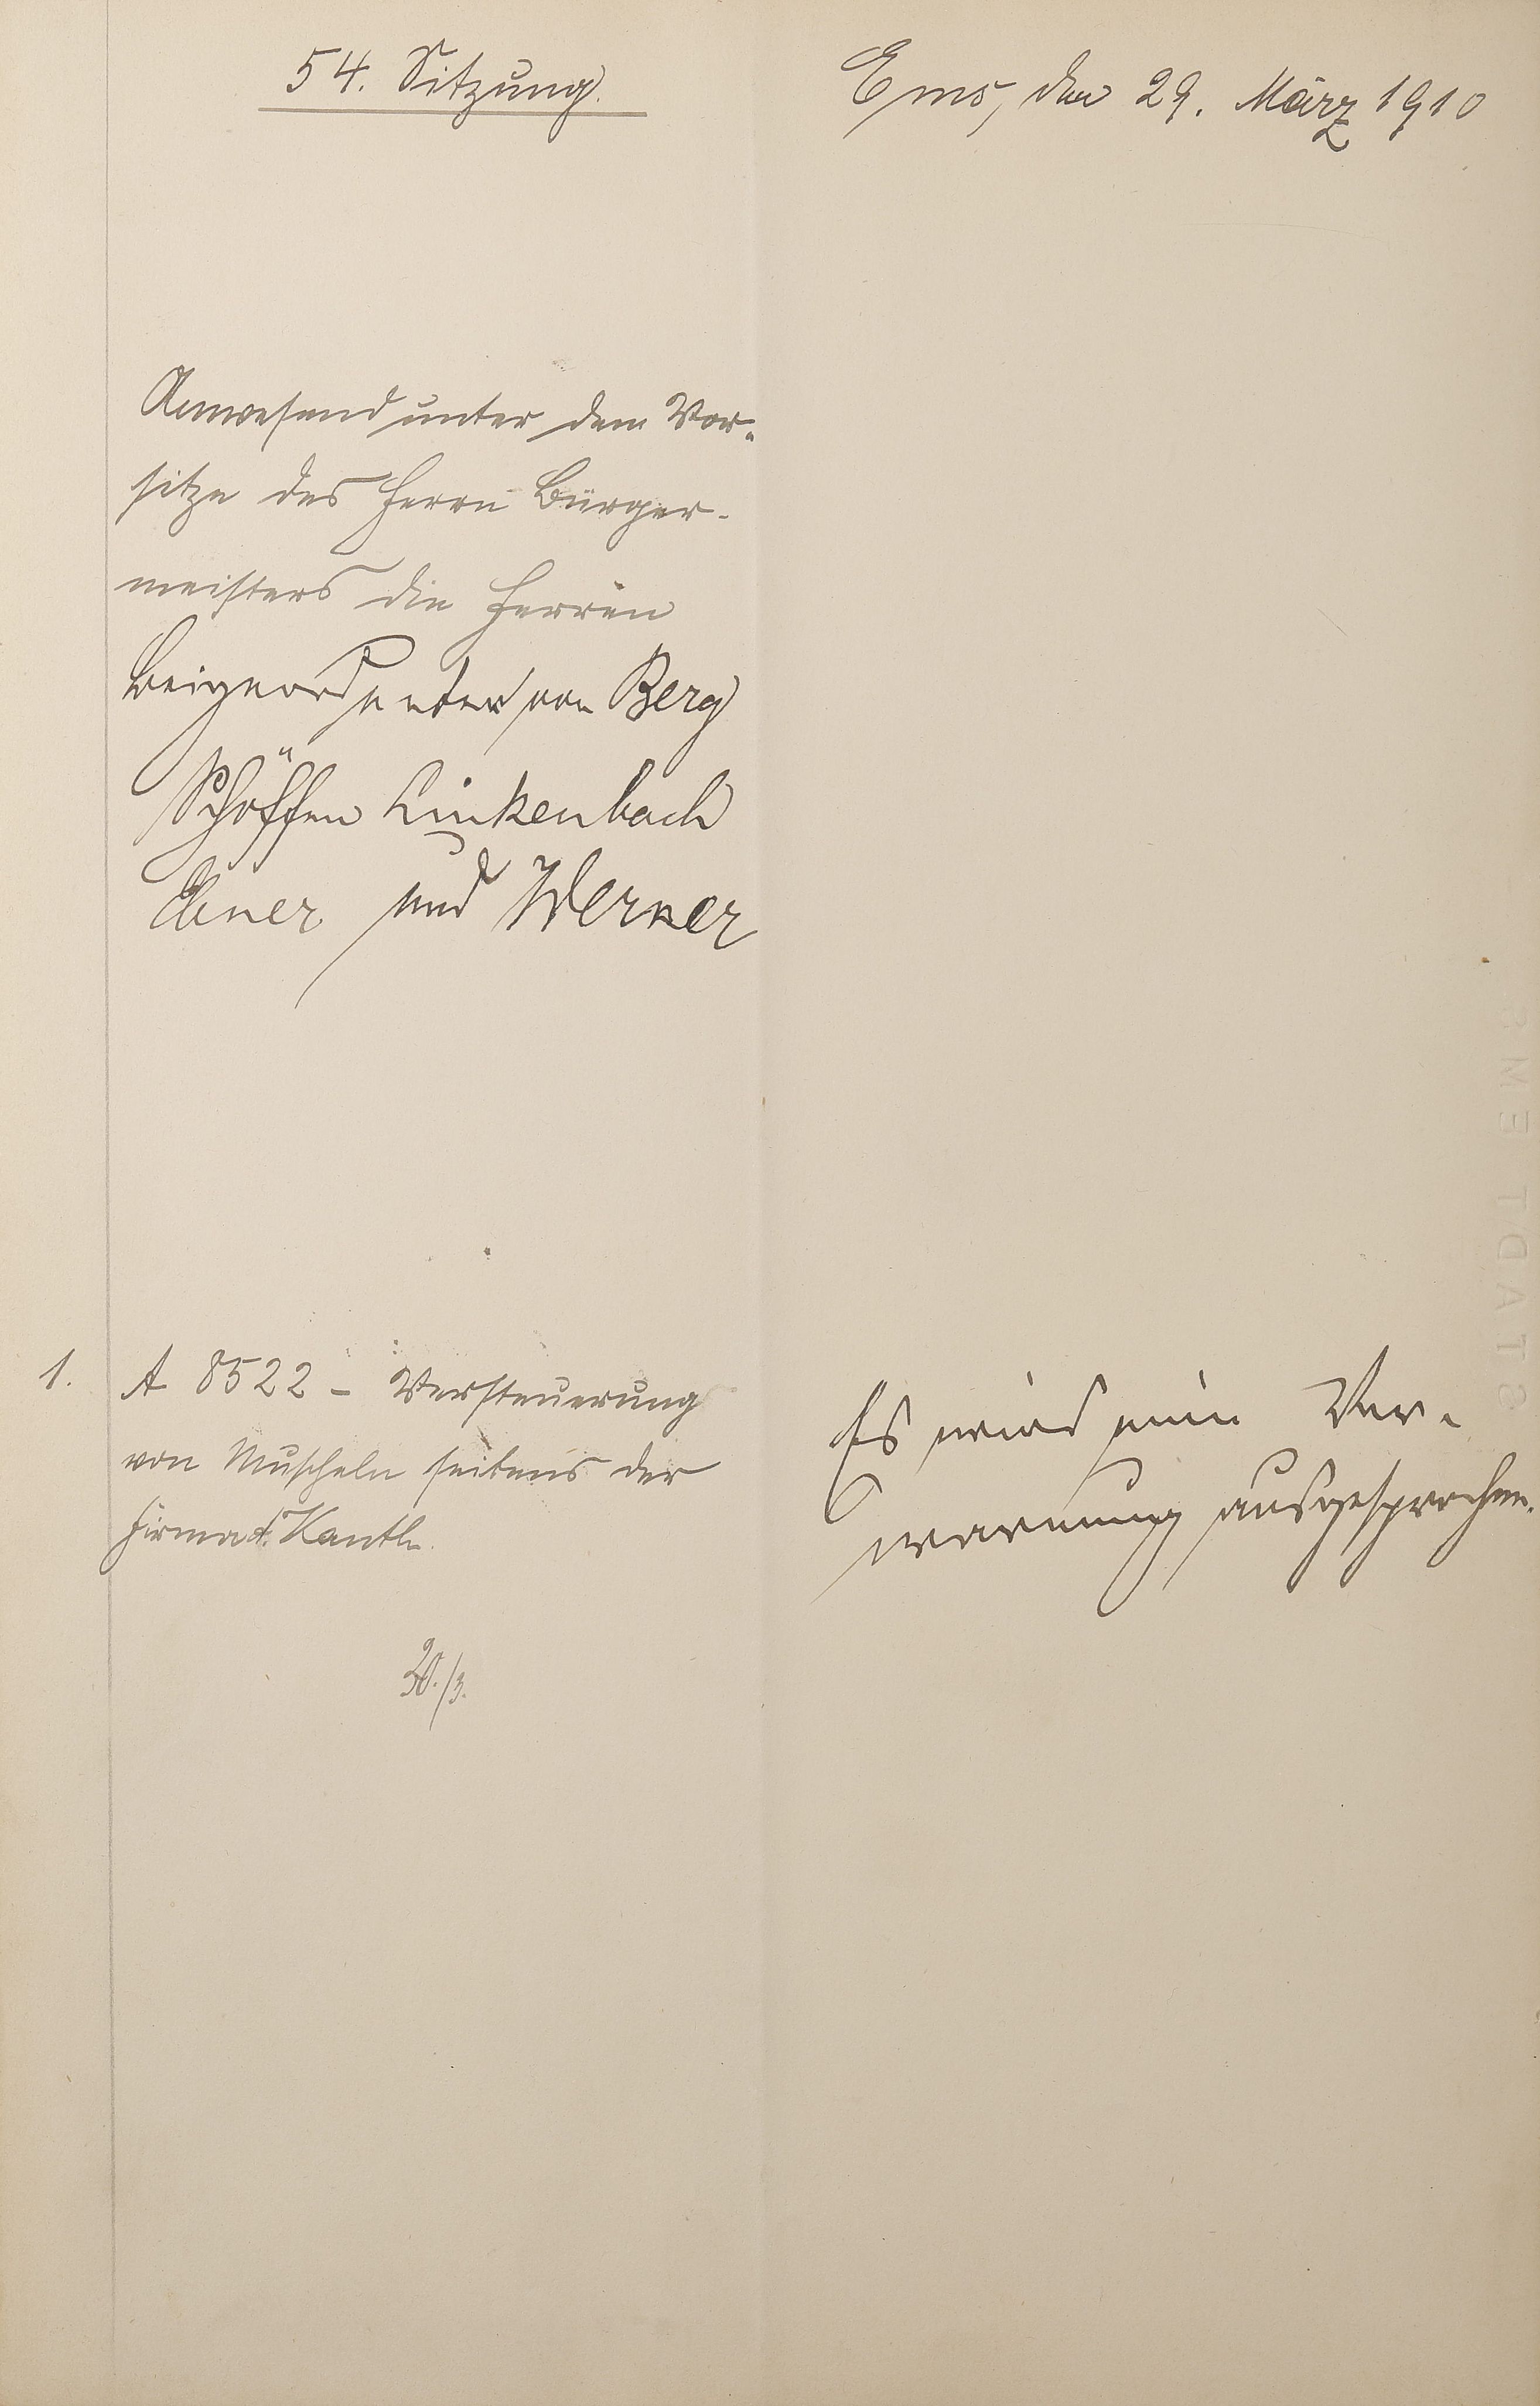 54. Sitzung.
Ems, den 29. März 1910
Anwesend unter dem Vor-
sitze des Herrn Bürger-
meisters die Herren
Beigeordneter von Berg
Schöffen Linkenbach
Ebner und Werner
1. A 8522 - Versteuerung
von Muscheln seitens der
Firma F. Kauth.
Es wird eine Ver-
warnung ausgesprochen.
30./3.
STADT EMS